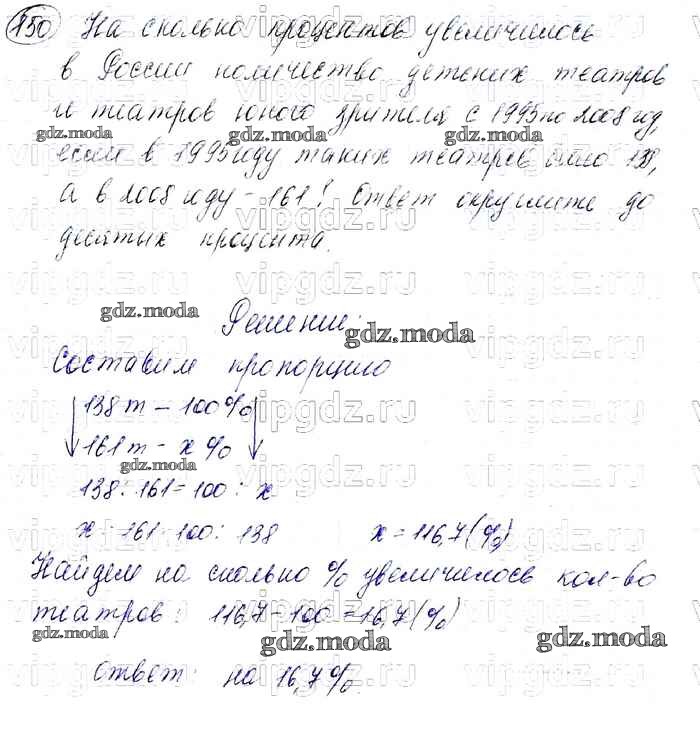 150 На сколько процентов увеличилось
в России количество детских театров
и театров юного зрителя с 1995 по 2008 год,
если в 1995 году таких театров было 138,
а в 2008 году - 161? Ответ округлите до
десятых процента.
Решение:
Составим пропорцию
138 т — 100%
161 т - х %
138 : 161 = 100 : х
х = 161 · 100 : 138 х = 116,7 (%)
Найдем на сколько % увеличилось кол-во
театров: 116,7 - 100 = 16,7 (%)
Ответ: на 16,7%
gdz.moda
vipgdz.ru